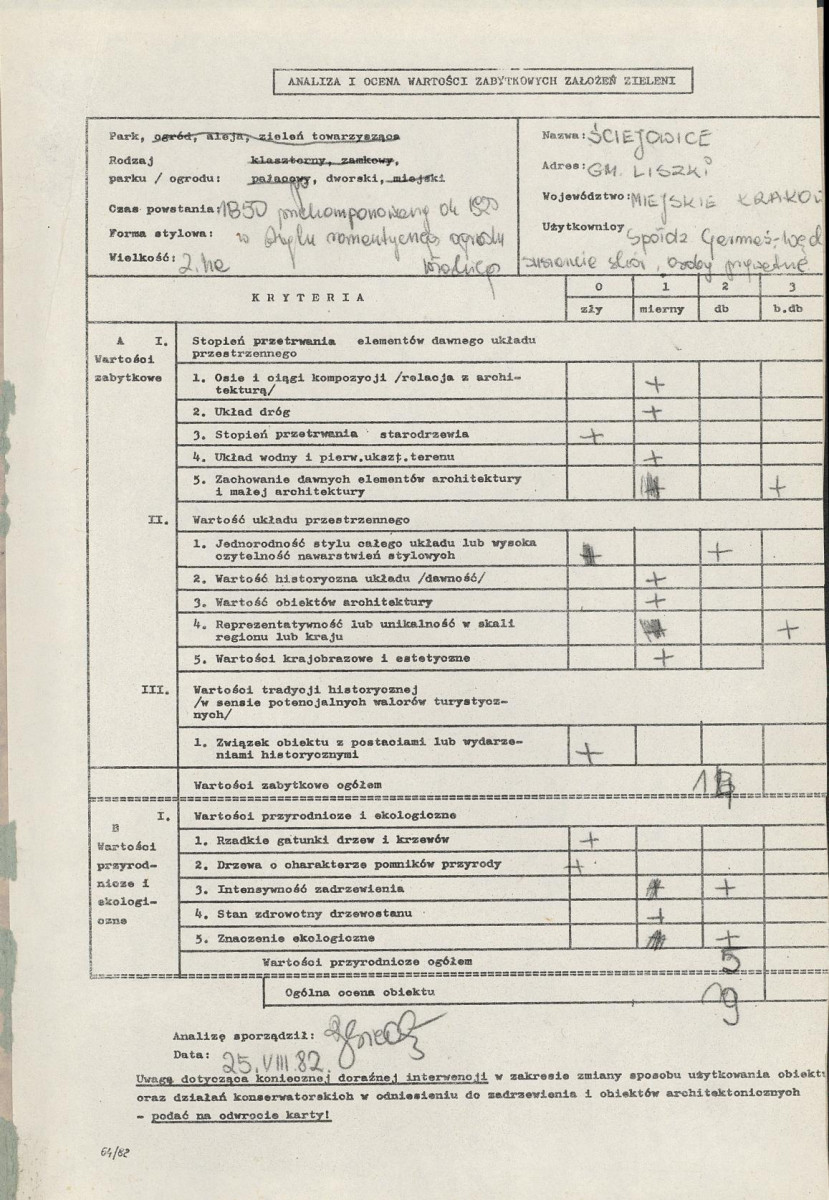 ANALIZA I OCENA WARTOŚCI ZABYTKOWYCH ZAŁOŻEŃ ZIELENI
Park, ogród, aleja, zieleń towarzysząca
Rodzaj klasztorny, zamkowy,
parku / ogrodu: pałacowy, dworski, miejski
Czas powstania: 1850 przekomponowany ok 1920
Forma stylowa: w stylu romantycznego ogrodu
Wielkość: 2. ha
Nazwa: ŚCIEJOWICE
Adres: GM. LISZKI
Województwo: MIEJSKIE KRAKÓW
Użytkownicy Spółdz
osoby prywatne
KRYTERIA
0 1 2 3
zły mierny db b.db
A I. Stopień przetrwania elementów dawnego układu
Wartości przestrzennego
zabytkowe
1. Osie i ciągi kompozycji /relacja z archi-
tekturą/ +
2. Układ dróg +
3. Stopień przetrwania starodrzewia +
4. Układ wodny i pierw.ukszt.terenu +
5. Zachowanie dawnych elementów architektury
i małej architektury +
II. Wartość układu przestrzennego
1. Jednorodność stylu całego układu lub wysoka
czytelność nawarstwień stylowych +
2. Wartość historyczna układu /dawność/ +
3. Wartość obiektów architektury +
4. Reprezentatywność lub unikalność w skali
regionu lub kraju +
5. Wartości krajobrazowe i estetyczne +
III. Wartości tradycji historycznej
/w sensie potencjalnych walorów turystycz-
nych/
1. Związek obiektu z postaciami lub wydarze-
niami historycznymi +
Wartości zabytkowe ogółem
B I. Wartości przyrodnicze i ekologiczne
Wartości
przyrod-
nicze i
ekologi-
czne
1. Rzadkie gatunki drzew i krzewów +
2. Drzewa o charakterze pomników przyrody +
3. Intensywność zadrzewienia +
4. Stan zdrowotny drzewostanu +
5. Znaczenie ekologiczne +
Wartości przyrodnicze ogółem 5
Ogólna ocena obiektu 19
Analizę sporządził:
Data: 25.VIII.82
Uwagę dotycząca koniecznej doraźnej interwencji w zakresie zmiany sposobu użytkowania obiektu
oraz działań konserwatorskich w odniesieniu do zadrzewienia i obiektów architektonicznych
- podać na odwrocie karty!
64/82